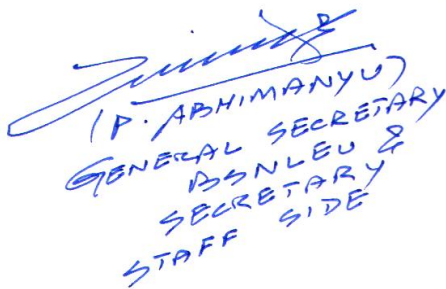 (P. ABHIMANYU)
GENERAL SECRETARY
BSNLEU &
SECRETARY
STAFF SIDE